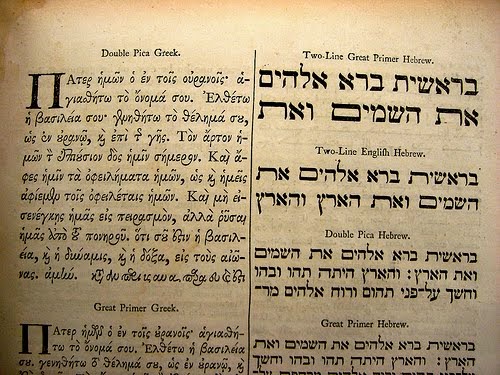 Double Pica Greek.
ΠΑτερ ἡμῶν ὁ ἐν τοῖς οὐρανοῖς· ἁ-
γιασθήτω τὸ ὄνομά σου. Ἐλθέτω
ἡ βασιλεία σου· γενηθήτω τὸ θέλημά σου,
ὡς ἐν οὐρανῷ, ϗ ἐπὶ τῆς γῆς. Τὸν ἄρτον ἡ-
μῶν τὸν ἐπιούσιον δὸς ἡμῖν σήμερον. Καὶ ἄ-
φες ἡμῖν τὰ ὀφειλήματα ἡμῶν, ὡς ϗ ἡμεῖς
ἀφίεμεν τοῖς ὀφειλέταις ἡμῶν. Καὶ μὴ εἰ-
σενέγκῃς ἡμᾶς εἰς πειρασμὸν, ἀλλὰ ῥῦσαι
ἡμᾶς ἀπὸ τοῦ πονηροῦ. ὅτι σοῦ ἐστιν ἡ βασι-
λεία, ϗ ἡ δύναμις, ϗ ἡ δόξα, εἰς τοὺς αἰῶ-
νας. ἀμήν.
Great Primer Greek.
ΠΑτερ ἡμῶν ὁ ἐν τοῖς οὐρανοῖς· ἁγιασθή-
τω τὸ ὄνομά σου. Ἐλθέτω ἡ βασιλεία
σου. γενηθήτω τὸ θέλημά σου, ὡς ἐν οὐρανῷ, ϗ
Two-Line Great Primer Hebrew.
בראשית ברא אלהים
את השמים ואת
Two-Line Engliſh Hebrew.
בראשית ברא אלהים את
השמים ואת הארץ והארץ
Double Pica Hebrew.
בראשית ברא אלהים את השמים
ואת הארץ: והארץ היתה תהו ובהו
וחשך על־פני תהום ורוח אלהים מר־
Great Primer Hebrew.
בראשית ברא אלהים את השמים ואת
הארץ: והארץ היתה תהו ובהו וחשך